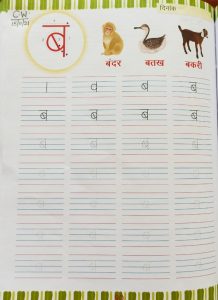 CW
दिनांक
ब
बंदर बतख बकरी
। व ब ब
ब ब ब ब
ब ब ब ब
ब ब ब ब
ब ब ब ब
ब ब ब ब
ब ब ब ब